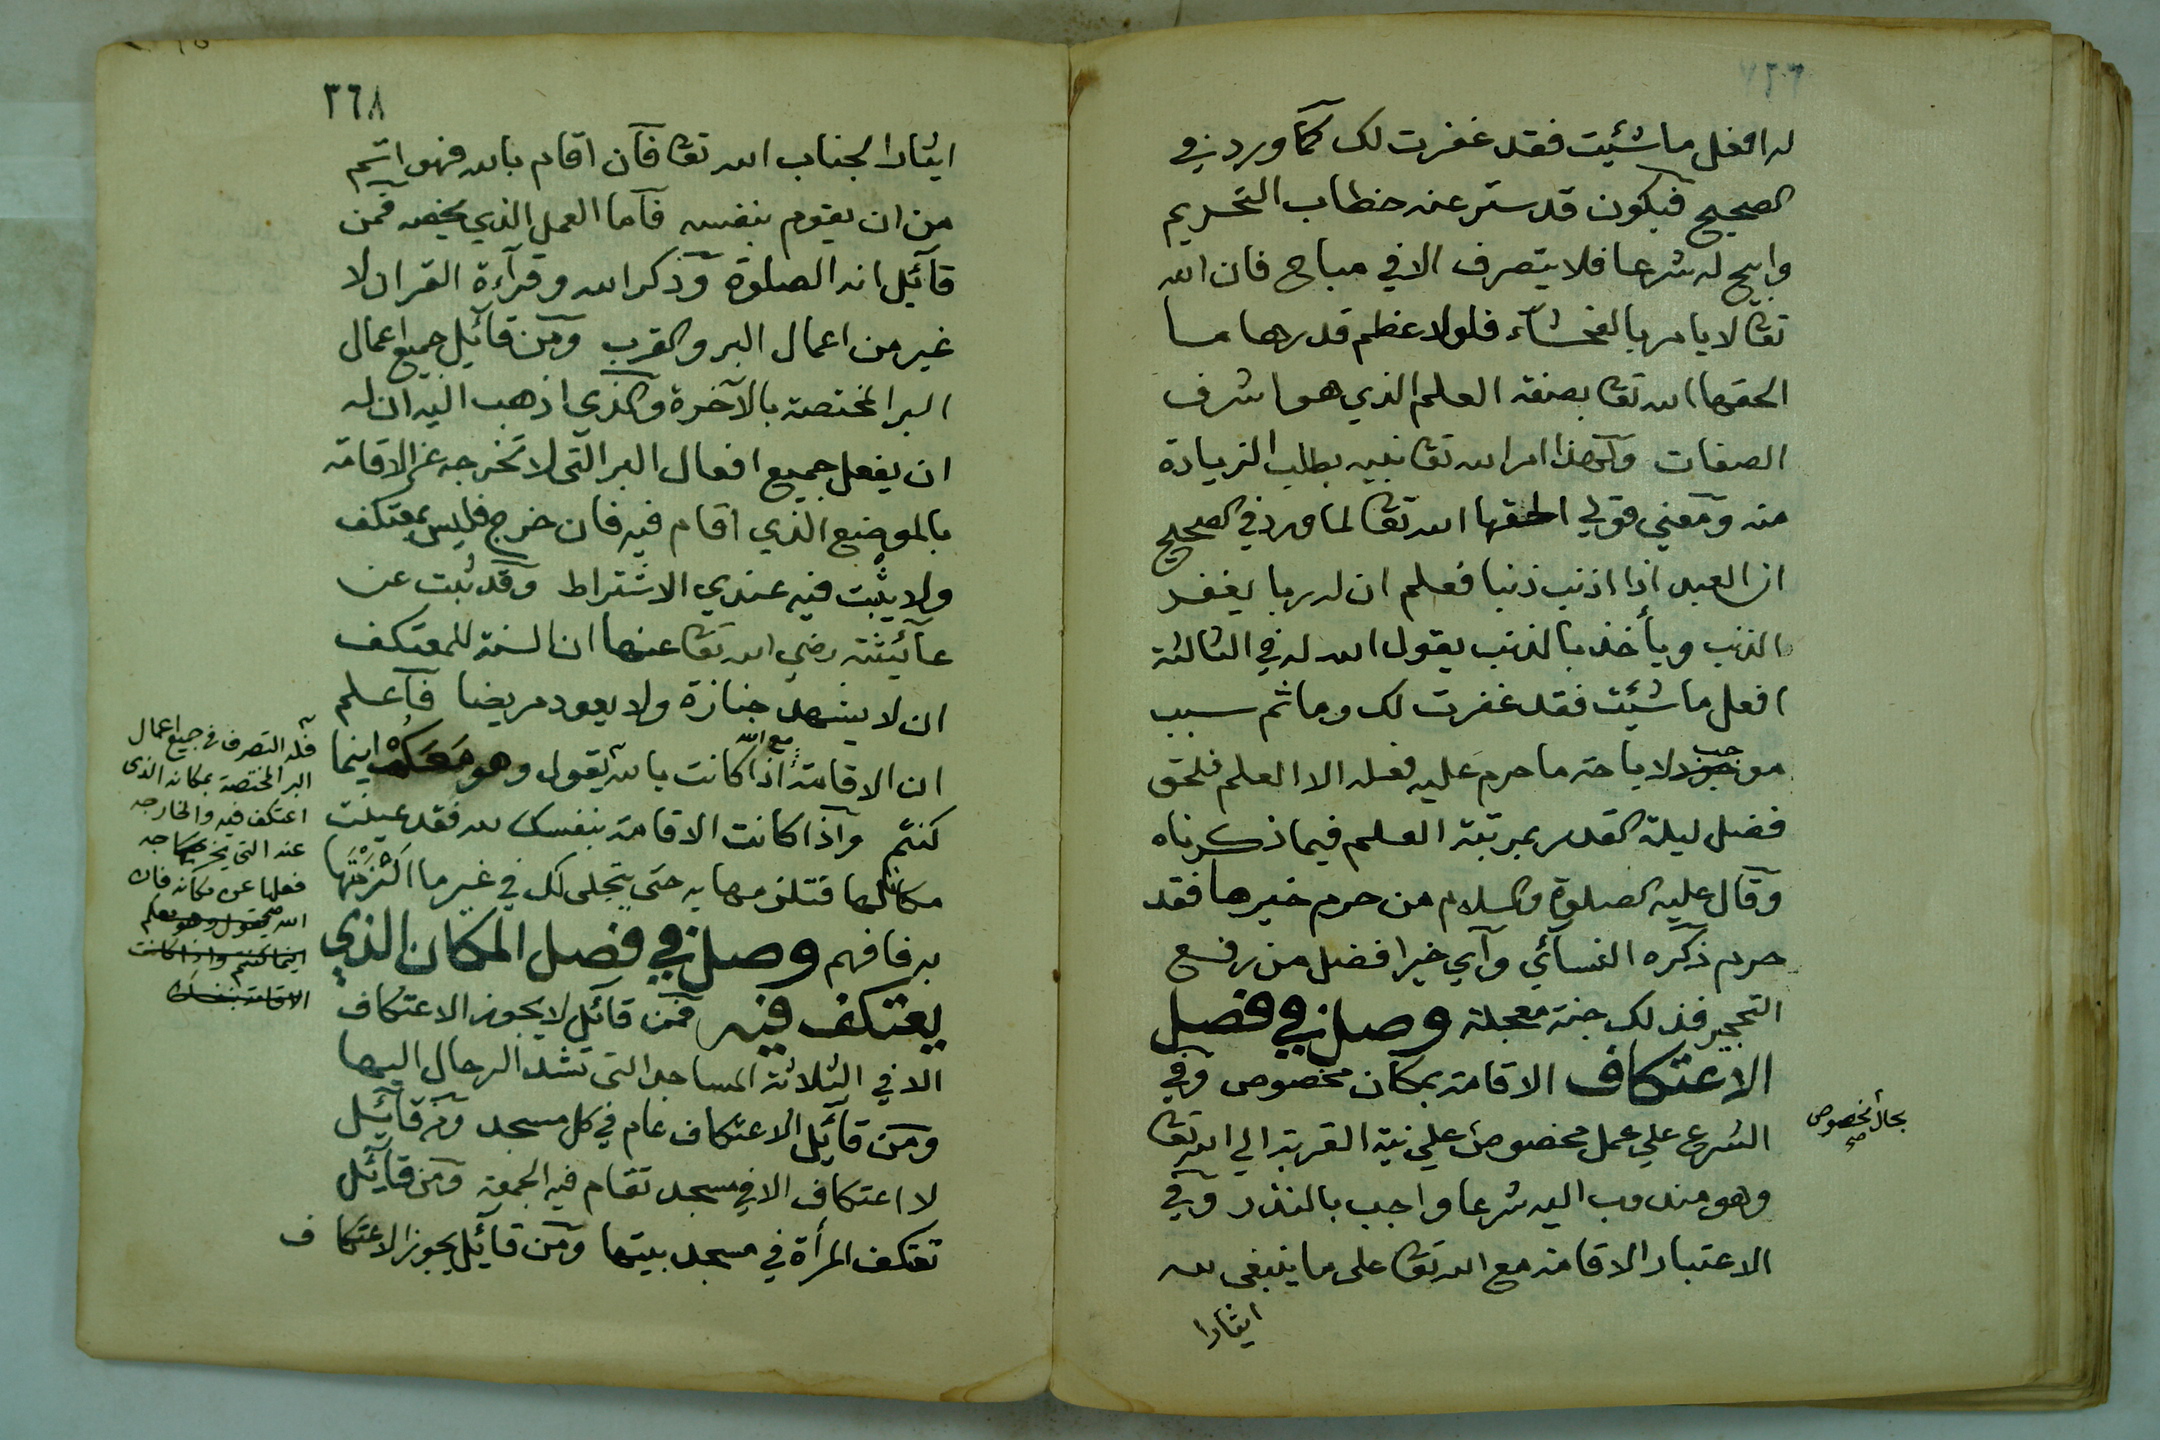 له افعل ما شئت فقد غفرت لك كما ورد في
الصحيح فيكون قد ستر عنه خطاب التحريم
وابيح له شرعا فلا يتصرف الا في مباح فان الله
تعا لا يامر بالفحشآء فلولا عظم قدرها ما
الحقها الله تعا بصفة العلم الذي هو اشرف
الصفات ولهذا امر الله تعا نبيه بطلب الزيادة
منه ومعني قولي الحقها الله تعا لما ورد في الصحيح
ان العبد اذا اذنب ذنبا فعلم ان له ربا يغفر
الذنب ويأخذ بالذنب يقول الله له في الثالثة
افعل ما شئت فقد غفرت لك وما ثم سبب
موجب لاباحة ما حرم عليه فعله الا العلم فلحق
فضل ليلة القدر بمرتبة العلم فيما ذكرناه
وقال عليه الصلوة والسلام من حرم خيرها فقد
حرم ذكره النسائي وآي خير افضل من رفع
التحجير فذلك جنة معجلة وصل في فصل
الاعتكاف الاقامة بمكان مخصوص وفي
الشرع علي عمل مخصوص علي نية القربة الي الله تعا
بحال مخصوص صح
وهو مندوب اليه شرعا واجب بالنذر وفي
الاعتبار الاقامة مع الله تعا على ما ينبغى لله
ايثارا
٣٦٨
ايثارا لجناب الله تعا فآن اقام بالله فهو اتم
من ان يقوم بنفسه فآما العمل الذي يخصه فمن
قآئل انه الصلوة وذكر الله وقرآءة القران لا
غير من اعمال البر والقرب ومن قآئل جميع اعمال
البر المختصة بالآخرة والذي اذهب اليه ان له
ان يفعل جميع افعال البر التي لا تخرجه عن الاقامة
بالموضع الذي اقام فيه فان خرج فليس بمعتكف
ولا يثبت فيه عندي الاشتراط وقد ثبت عن
عآئيشة رضي الله تعا عنها ان السنة للمعتكف
ان لا يشهد جنازة ولا يعود مريضا فآعلم
ان الاقامة مع الله اذا كانت بالله يقول وهو معكم اينما
كنتم وآذا كانت الاقامة بنفسك لله فقد عينت
مكانها فتلزمها به حتى يتجلى لك في غير ما الزمتها
به فافهم وصل في فصل المكان الذي
يعتكف فيه فمن قآئل لا يجوز الاعتكاف
الا في الثلاثة المساجد التي تشد الرحال اليها
ومن قآئل الاعتكاف عام في كل مسجد ومن قآئل
لا اعتكاف الا في مسجد تقام فيه الجمعة ومن قآئل
تعتكف المرأة في مسجد بيتها ومن قآئل يجوز الاعتكاف
فله التصرف في جميع اعمال
البر المختصة بمكانه الذي
اعتكف فيه والخارجه
عنه التي يخرجه
فعلها عن مكانه فان
الله يقول وهو معكم
اينما كنتم واذا كانت
الاقامة بنفسك